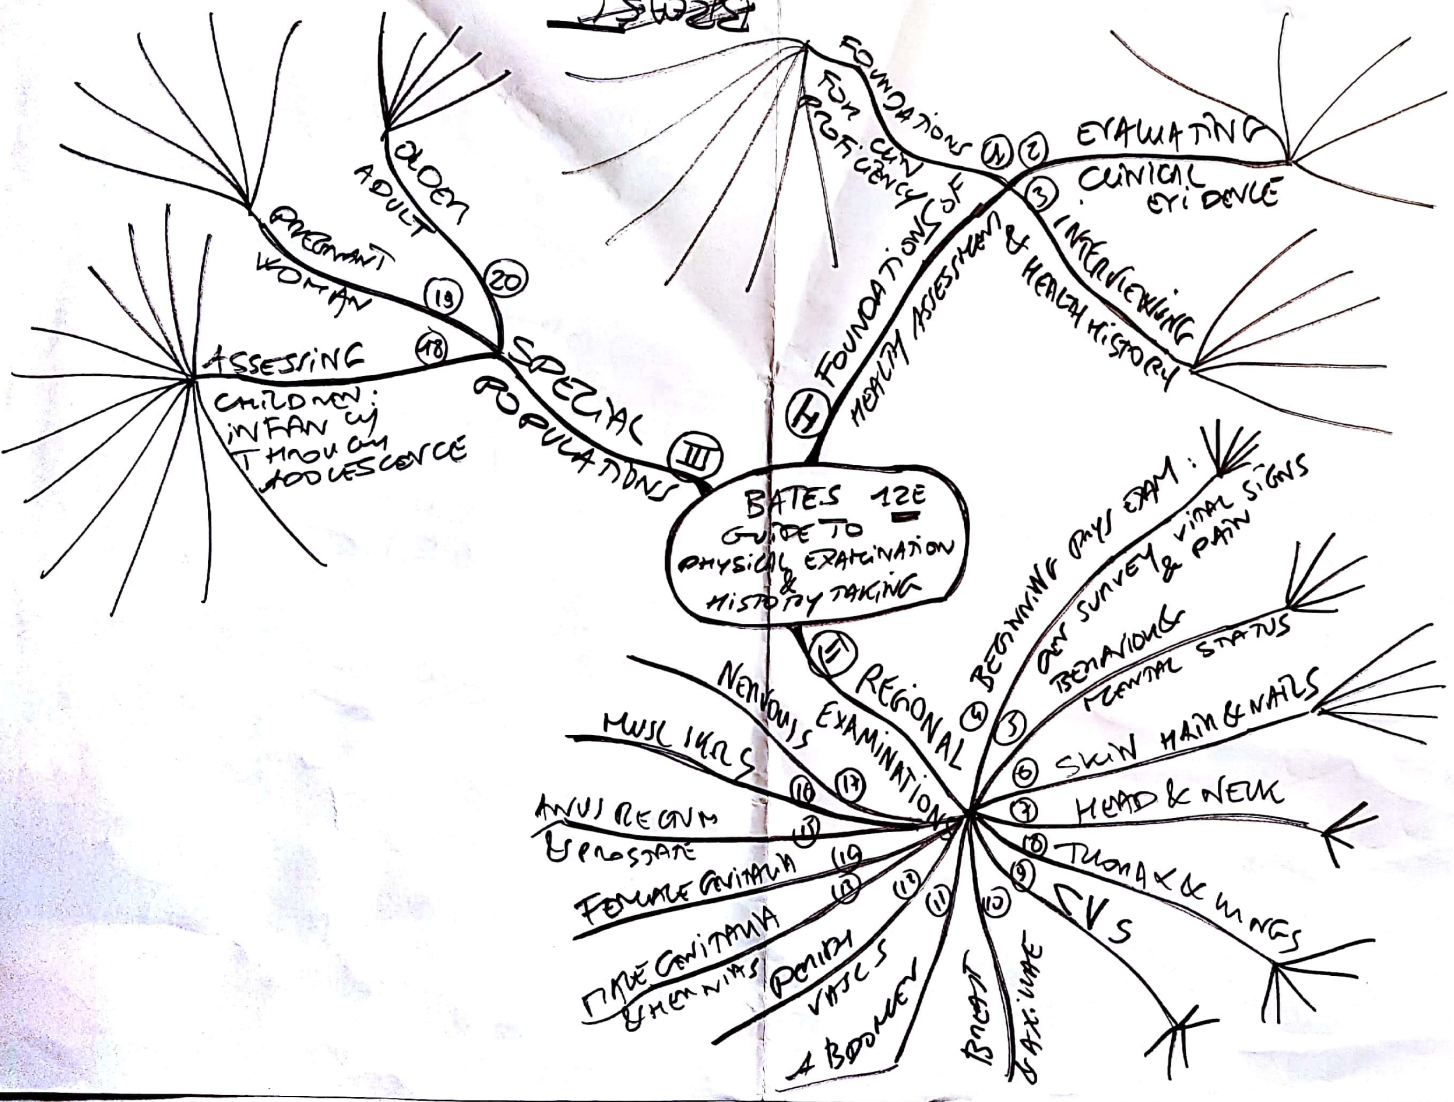 BREAST
BATES 12E
GUIDE TO
PHYSICAL EXAMINATION
&
HISTORY TAKING
I
FOUNDATIONS OF
HEALTH ASSESSMENT
1
FOUNDATIONS
FOR CLIN
PROFICIENCY
2
EVALUATING
CLINICAL
EVIDENCE
3
INTERVIEWING
& HEALTH HISTORY
II
REGIONAL
EXAMINATIONS
4
BEGINNING PHYS EXAM:
GEN SURVEY VITAL SIGNS
& PAIN
5
BEHAVIOUR &
MENTAL STATUS
6
SKIN HAIR & NAILS
7
HEAD & NECK
THORAX & LUNGS
9
CVS
10
BREAST
& AXILLAE
11
ABDOMEN
12
PERIPH
VASC S
13
MALE GENITALIA
& HERNIAS
FEMALE GENITALIA
15
ANUS RECTUM
& PROSTATE
16
MUSC SKEL S
17
NERVOUS S
III
SPECIAL
POPULATIONS
18
ASSESSING
CHILDREN:
INFANCY
THROUGH
ADOLESCENCE
19
PREGNANT
WOMAN
20
OLDER
ADULT